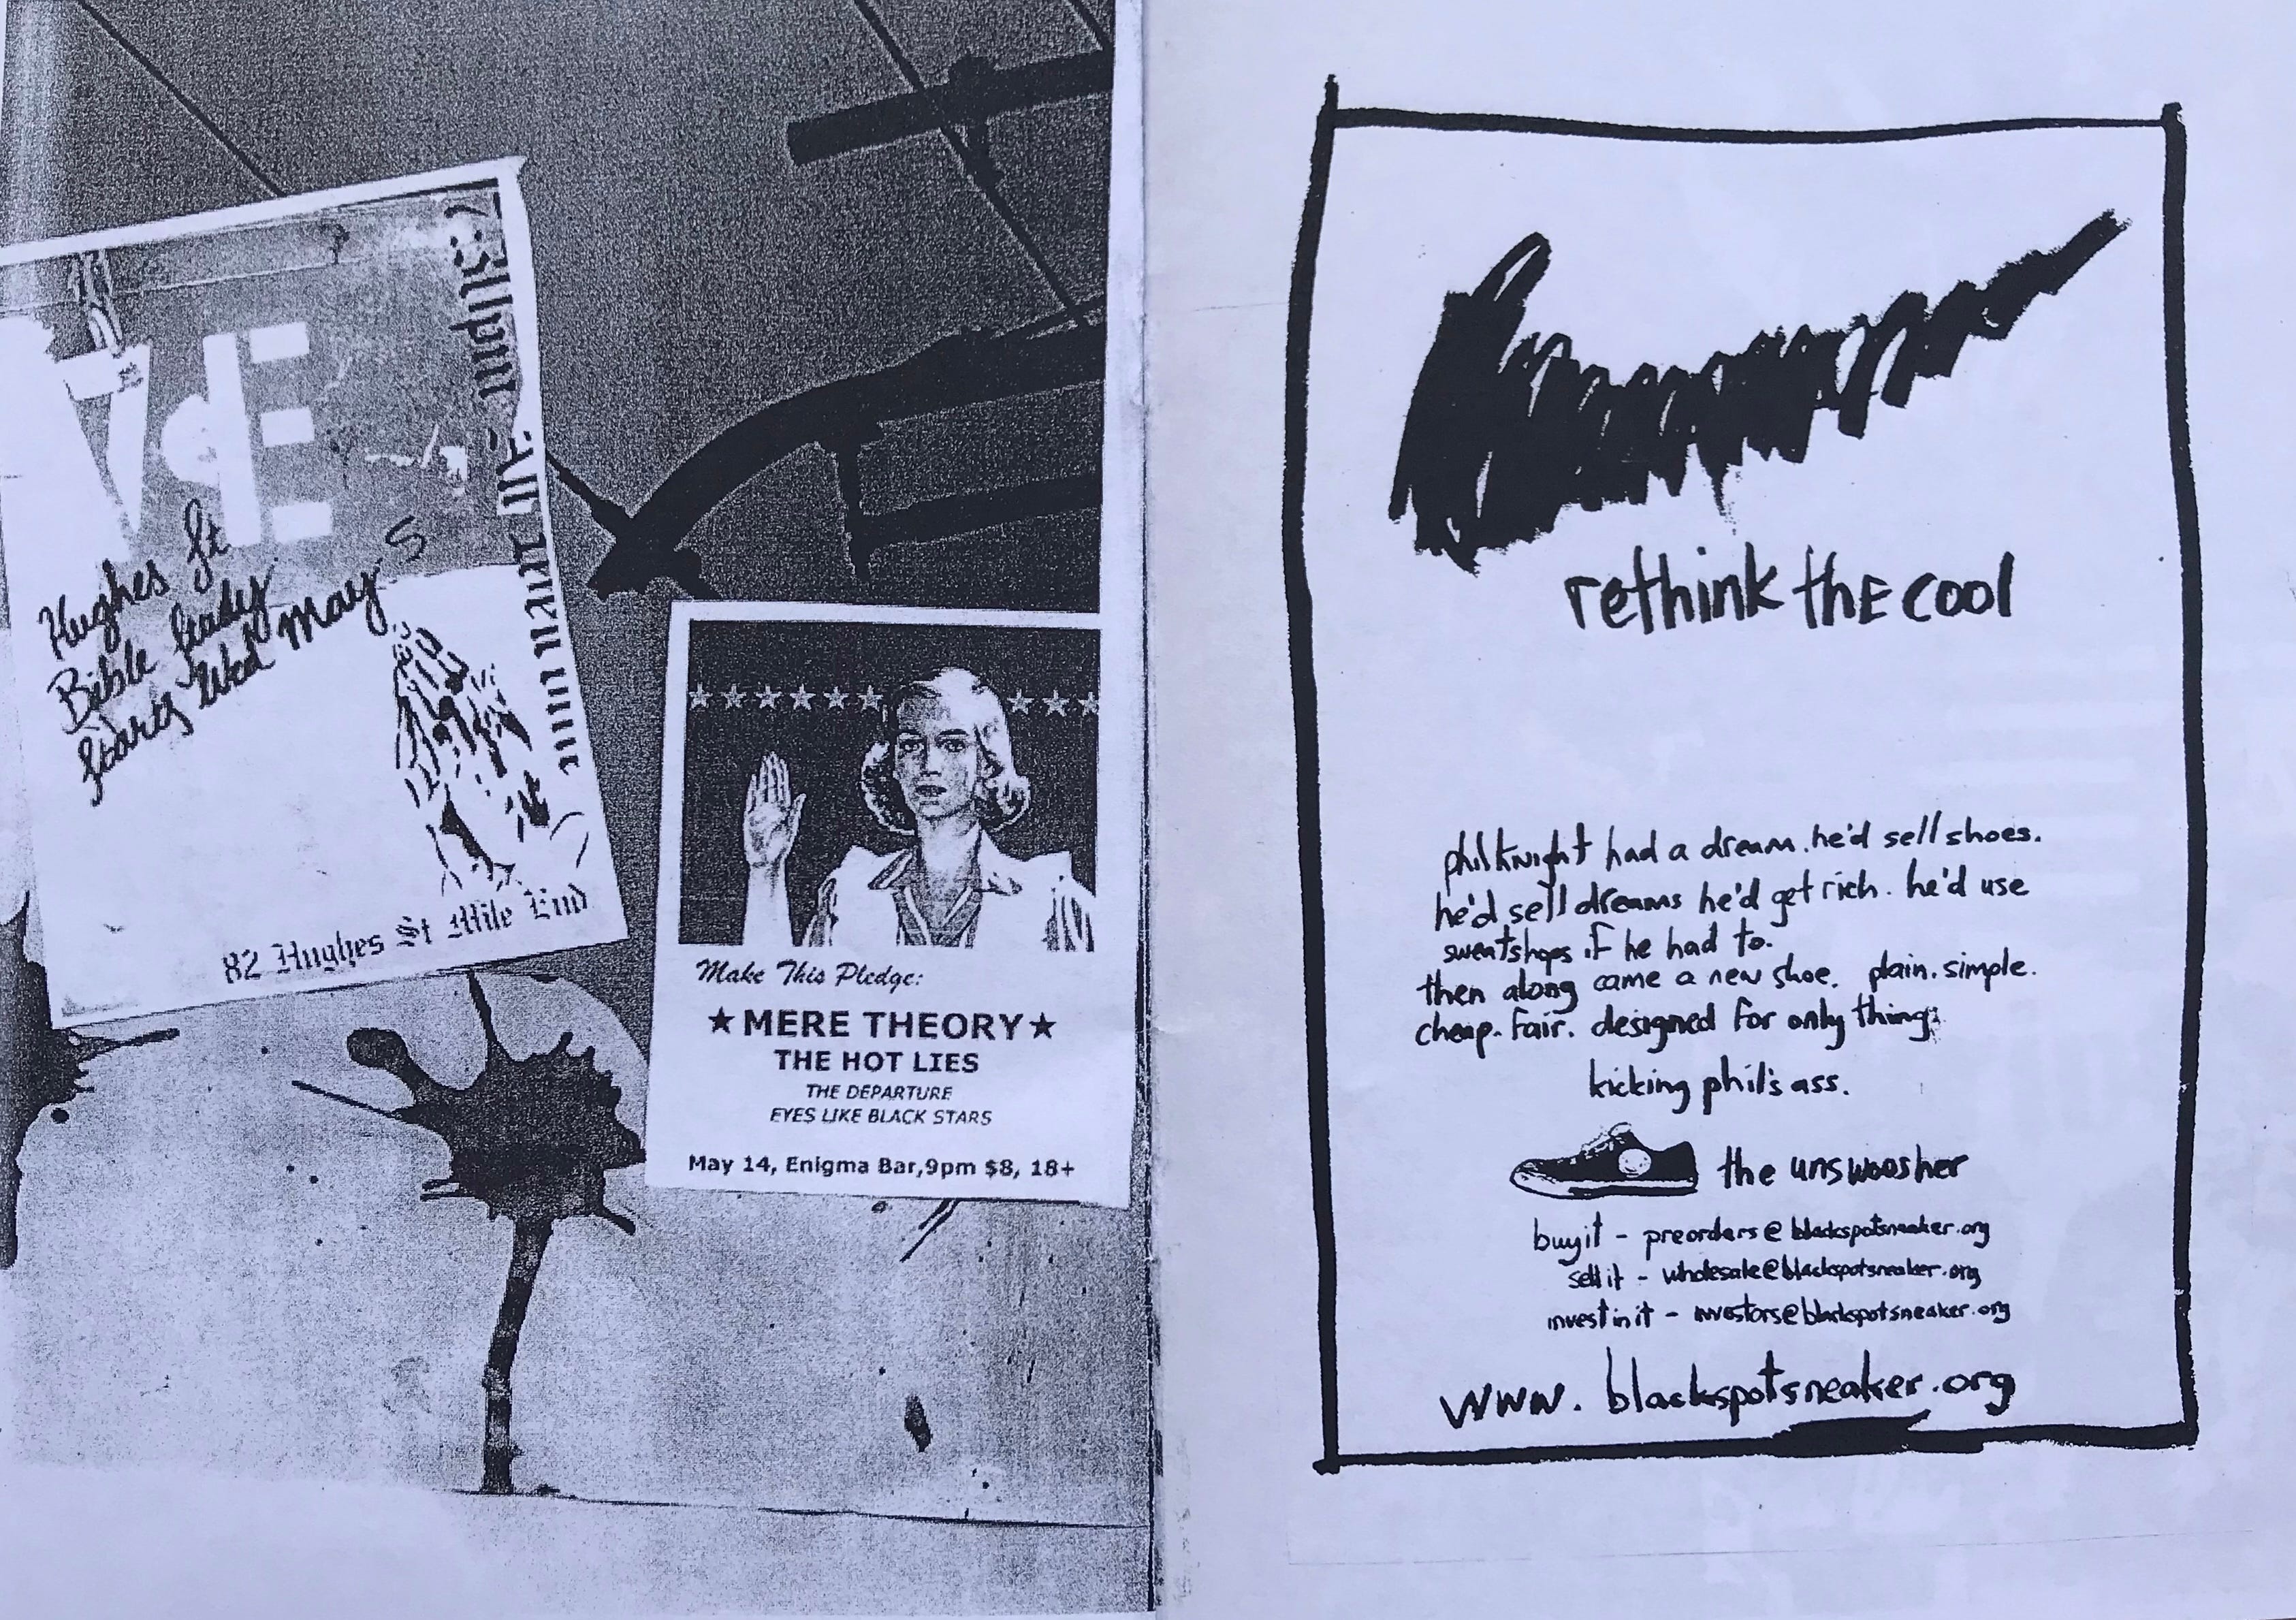 VdE
Hughes St
Bible Study
starts Wed May 5
82 Hughes St Mile End
Make This Pledge:
★MERE THEORY★
THE HOT LIES
THE DEPARTURE
EYES LIKE BLACK STARS
May 14, Enigma Bar,9pm $8, 18+
rethink thE cool
phil knight had a dream. he'd sell shoes.
he'd sell dreams he'd get rich. he'd use
sweatshops if he had to.
then along came a new shoe. plain. simple.
cheap. fair. designed for only thing:
kicking phil's ass.
the unswoosher
buy it - preorders@blackspotsneaker.org
sell it - wholesale@blackspotsneaker.org
invest in it - investors@blackspotsneaker.org
www.blackspotsneaker.org